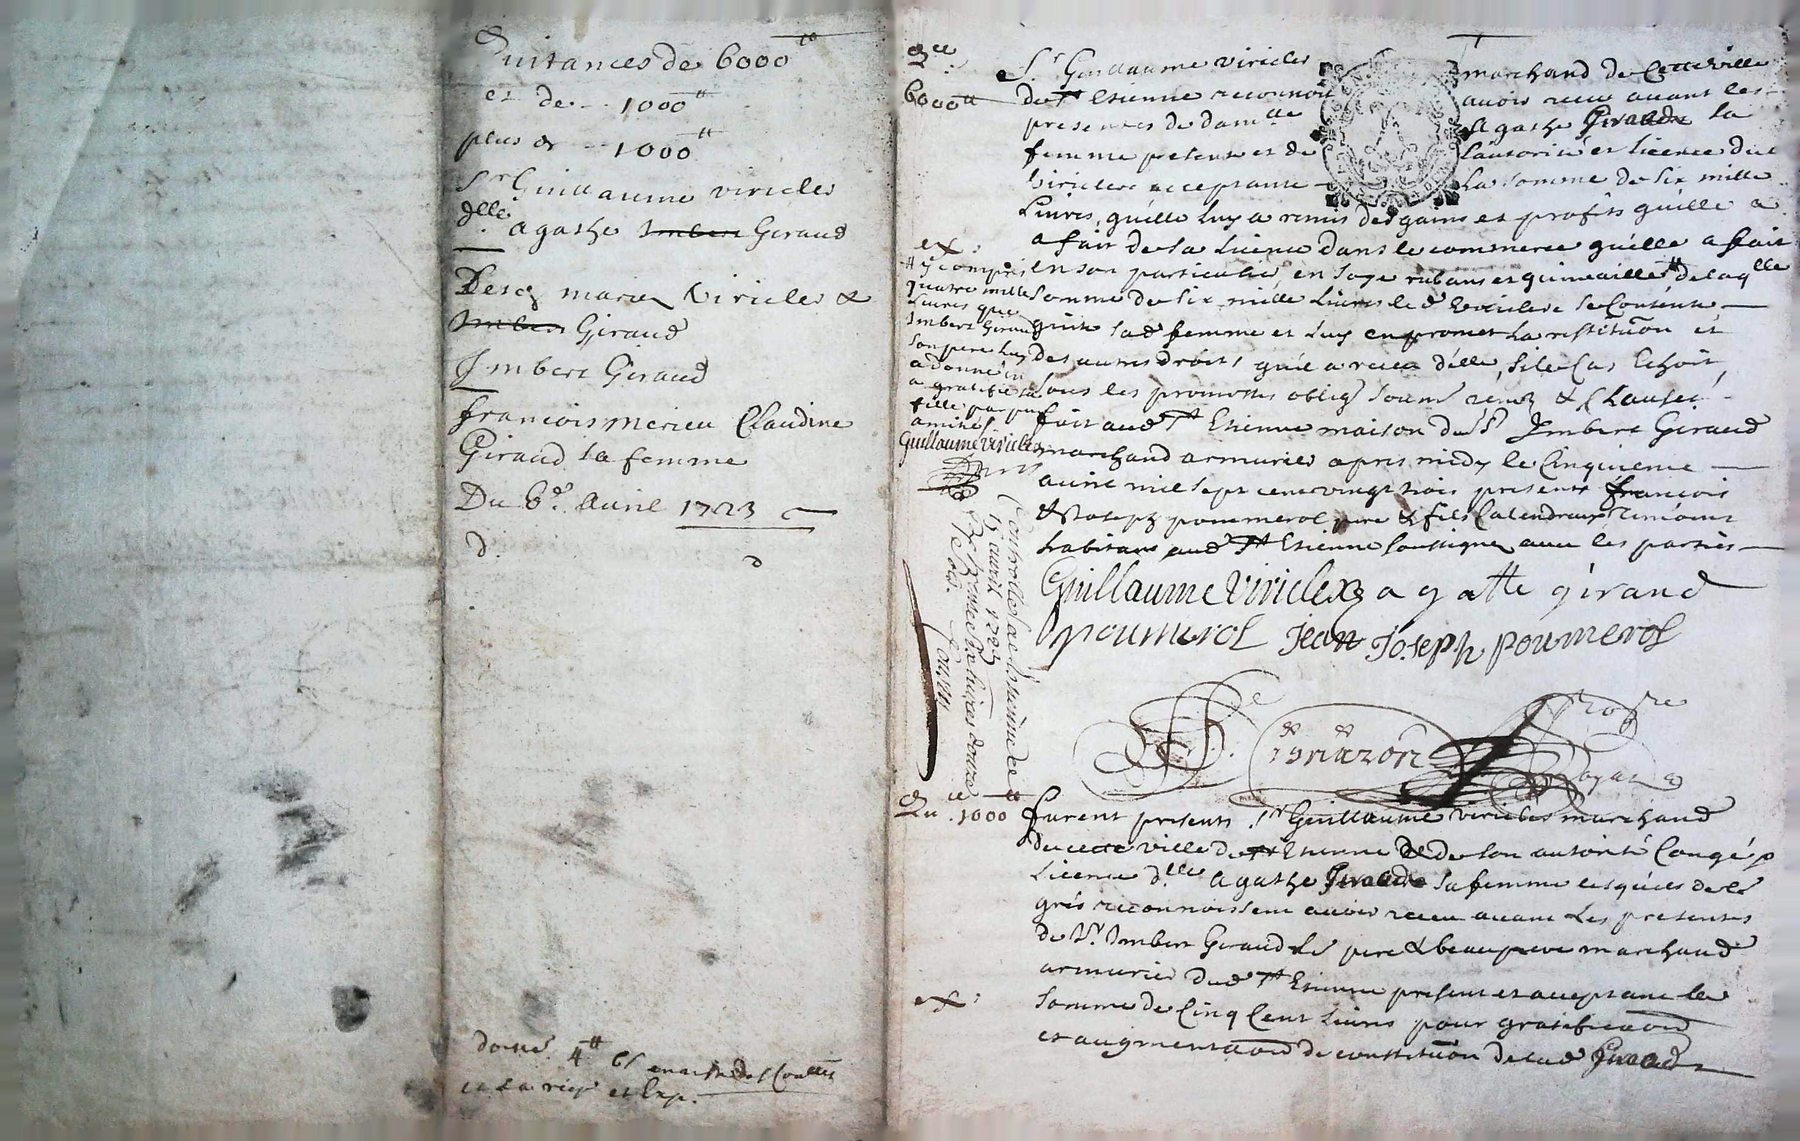 Quitances de 6000ᵗᵗ
et de -- 1000ᵗᵗ
plus de -- 1000ᵗᵗ
Sʳ Guillaume viricles
dˡˡᵉ agathe Imbert Giraud
mariez Viricles &
Imbert Giraud
Imbert Giraud
francois merieu Claudine
Giraud sa femme
Du 6ᵉ. Avril 1723
d. d
donné 4ᵗᵗ
et Exp.
Qᶜᵉ
6000ᵗᵗ
Sʳ Guillaume viricles marchand de Cette ville
de Sᵗ Etienne reconnoit avoir receu avant les
presentes de damˡˡᵉ agathe Giraude sa
femme presente et de l'autorité et licence dud
Viricles acceptante - La somme de six mille
Livres, qu'elle luy a remis des gains et profits qu'elle a
a fait de sa licence dans le commerce qu'elle a fait
en son particulier en soye rubans et quincaille # de laqˡˡᵉ
somme de six mille livres led Viricles se Contente
quite sad femme et luy en promet la restitution et
des autres droits qu'il a receu d'elle, si le Cas Echoit,
sous les promesses oblig soum renon & Clauses
fait aud Sᵗ Etienne maison du Sʳ Imbert Giraud
marchand armurier apres midy le Cinquieme
avril mil sept cent vingt trois presents francois
& Joseph pommerol pere & fils Calendreurs
habitans aud Sᵗ Etienne soussignez avec les parties
ex:
# y compris
quatre mille
livres que
Imbert Giraud
son pere luy
a donné en
a gratifié sa
fille par pure
amitié
Guillaume Viricles
Guillaume Viricles agatte giraud
poumerol Jean Joseph poumerol
Controllé a St Etienne ce
15 avril 1723
Reg
livres douze
sols.
Qu ᶜᵉ 1000ᵗᵗ
furent presents Sʳ Guillaume viricles marchand
de cette ville de Sᵗ Etienne & de son autorité Congé &
Licence dˡˡᵉ agathe Giraude sa femme lesquels de leur
grés reconnoissent avoir receu avant les presentes
de Sʳ Imbert Giraud leur pere & beaupere marchand
armurier dud Sᵗ Etienne present et acceptant la
ex:
somme de Cinq Cent livres pour gratification
et augmentation de constitution de lad Giraude